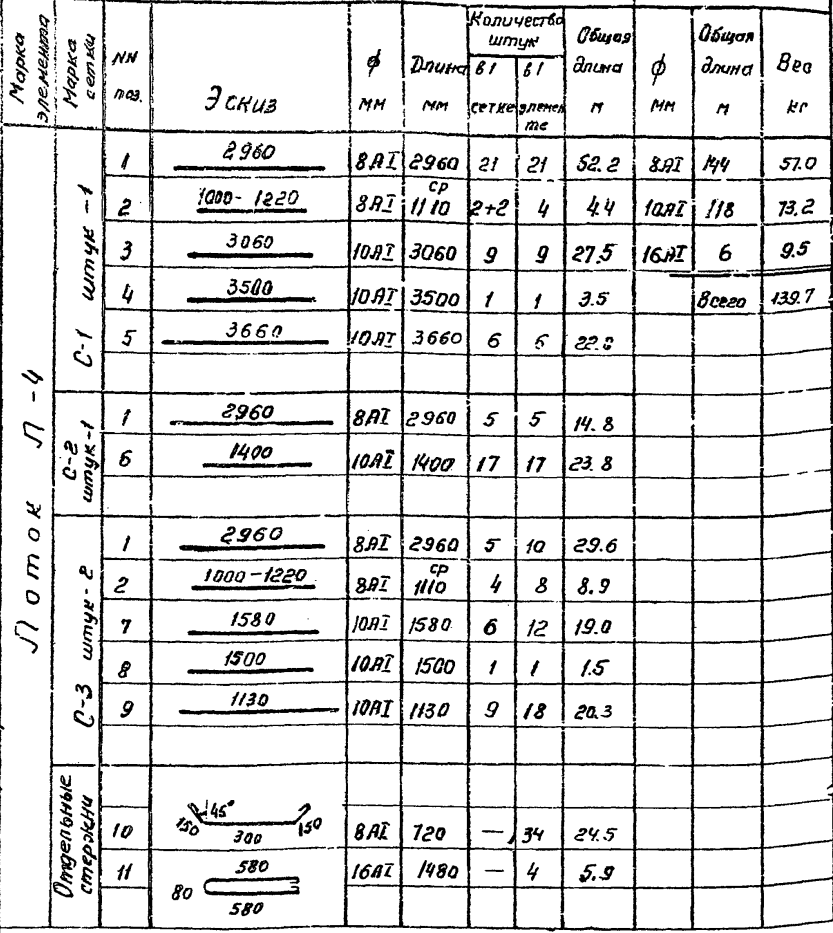 Марка элемента | Марка сетки | NN поз. | Эскиз | ф мм | Длина мм | Количество штук в 1 сетке | в 1 элементе | Общая длина м | ф мм | Общая длина м | Вес кг
Лоток Л-4
С-1 штук-1
1 | 2960 | 8АI | 2960 | 21 | 21 | 52.2 | 8АI | 144 | 57.0
2 | 1000-1220 | 8АI | ср 1110 | 2+2 | 4 | 4.4 | 10АI | 118 | 73.2
3 | 3060 | 10АI | 3060 | 9 | 9 | 27.5 | 16АI | 6 | 9.5
4 | 3500 | 10АI | 3500 | 1 | 1 | 3.5 | Всего | 139.7
5 | 3660 | 10АI | 3660 | 6 | 6 | 22.0
С-2 штук-1
1 | 2960 | 8АI | 2960 | 5 | 5 | 14.8
6 | 1400 | 10АI | 1400 | 17 | 17 | 23.8
С-3 штук-2
1 | 2960 | 8АI | 2960 | 5 | 10 | 29.6
2 | 1000-1220 | 8АI | ср 1110 | 4 | 8 | 8.9
7 | 1580 | 10АI | 1580 | 6 | 12 | 19.0
8 | 1500 | 10АI | 1500 | 1 | 1 | 1.5
9 | 1130 | 10АI | 1130 | 9 | 18 | 20.3
Отдельные стержни
10 | 45° 150 300 150 | 8АI | 720 | — | 34 | 24.5
11 | 580 80 580 | 16АI | 1480 | — | 4 | 5.9